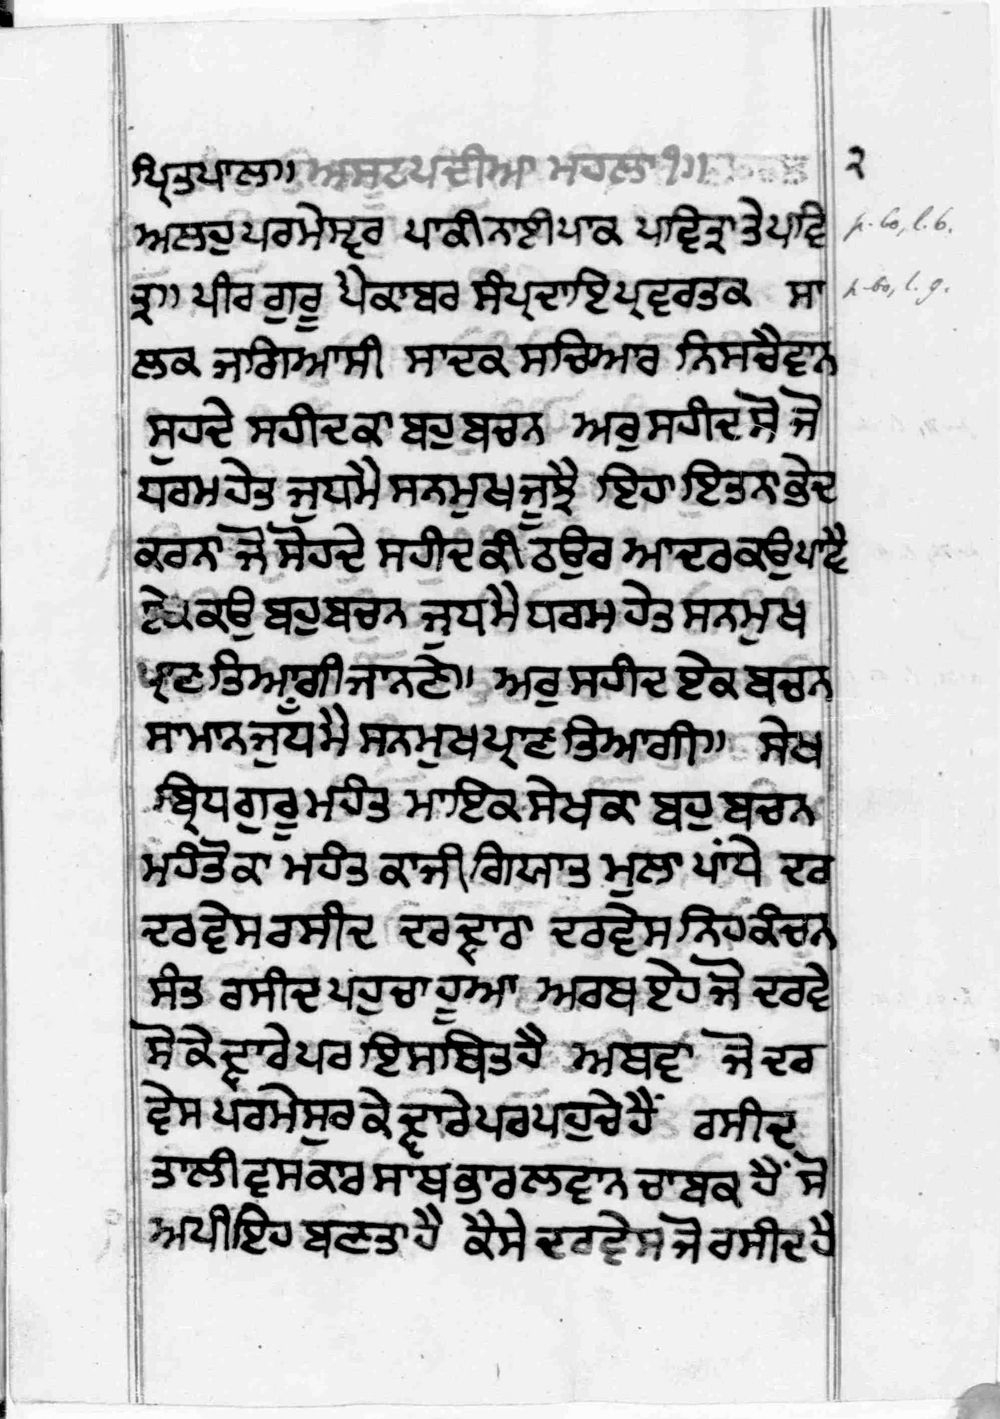 ਪ੍ਰਿਤਪਾਲਾ॥ ਅਸਟਪਦੀਆ ਮਹਲਾ ੧॥ ੨
ਅਲਹੁ ਪਰਮੇਸ੍ਵਰ ਪਾਕੀ ਨਾਈ ਪਾਕ ਪਵਿਤ੍ਰਾ ਤੇ ਪਵਿ p. 60, l. 6.
ਤ੍ਰ॥ ਪੀਰ ਗੁਰੂ ਪੈਕਾਬਰ ਸੰਪ੍ਰਦਾਇ ਪ੍ਰਵਰਤਕ ਸਾ p. 60, l. 9.
ਲਕ ਜਗਿਆਸੀ ਸਾਦਕ ਸਚਿਆਰ ਨਿਸਚੈਵਾਨ
ਸੁਹਦੇ ਸਹੀਦ ਕਾ ਬਹੁ ਬਚਨ ਅਰੁ ਸਹੀਦ ਸੋ ਜੋ
ਧਰਮ ਹੇਤ ਜੁਧ ਮੈ ਸਨਮੁਖ ਜੂਝੈ ਇਹਾ ਇਤਨਾ ਭੇਦ
ਕਰਨਾ ਜੋ ਸੋਹਦੇ ਸਹੀਦ ਕੀ ਠਉਰ ਆਦਰ ਕਉ ਪਾਵੈ
ਣੇ ਕਉ ਬਹੁ ਬਚਨ ਜੁਧ ਮੈ ਧਰਮ ਹੇਤ ਸਨਮੁਖ
ਪ੍ਰਾਣ ਤਿਆਗੀ ਜਾਨਣੇ॥ ਅਰੁ ਸਹੀਦ ਏਕ ਬਚਨ
ਸਾਮਾਨ ਜੁਧ ਮੈ ਸਨਮੁਖ ਪ੍ਰਾਣ ਤਿਆਗੀ॥ ਸੇਖ
ਬ੍ਰਿਧ ਗੁਰੂ ਮਹੰਤ ਮਾਇਕ ਸੇਖ ਕਾ ਬਹੁ ਬਚਨ
ਮਹੰਤੋ ਕਾ ਮਹੰਤ ਕਾਜੀ ਗਿਯਾਤ ਮੁਲਾ ਪਾਂਧੇ ਦਰ
ਦਰਵੇਸ ਰਸੀਦ ਦਰ ਦ੍ਵਾਰਾ ਦਰਵੇਸ ਨਿਹਕੰਚਨ
ਸੰਤ ਰਸੀਦ ਪਹੁਚਾ ਹੂਆ ਅਰਥ ਏਹ ਜੋ ਦਰਵੇ
ਸੋ ਕੇ ਦ੍ਵਾਰੇ ਪਰ ਇਸਥਿਤ ਹੈ ਅਥਵਾ ਜੋ ਦਰ
ਵੇਸ ਪਰਮੇਸੁਰ ਕੇ ਦ੍ਵਾਰੇ ਪਰ ਪਹੁਚੇ ਹੈਂ ਰਸੀਦ
ਤਾਲੀਵ ਸਕਾਰ ਸਾਥ ਭਾਰਲਵਾਨ ਚਾਬਕ ਹੈਂ ਸੋ
ਅਪੀ ਇਹ ਬਣਤਾ ਹੈ ਕੈਸੇ ਦਰਵੇਸ ਜੋ ਰਸੀਦ ਹੈ